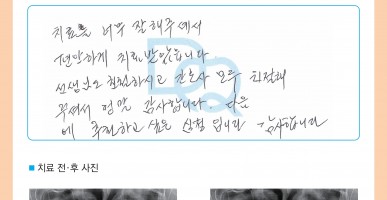 치료를 너무 잘 해주셔서
편안하게 치료 받았습니다
선생님도 친절하시고 간호사 모두 친절해
주셔서 정말 감사합니다. 다음
에 추천하고 싶은 심정 입니다 감사합니다
DQ
■ 치료 전·후 사진